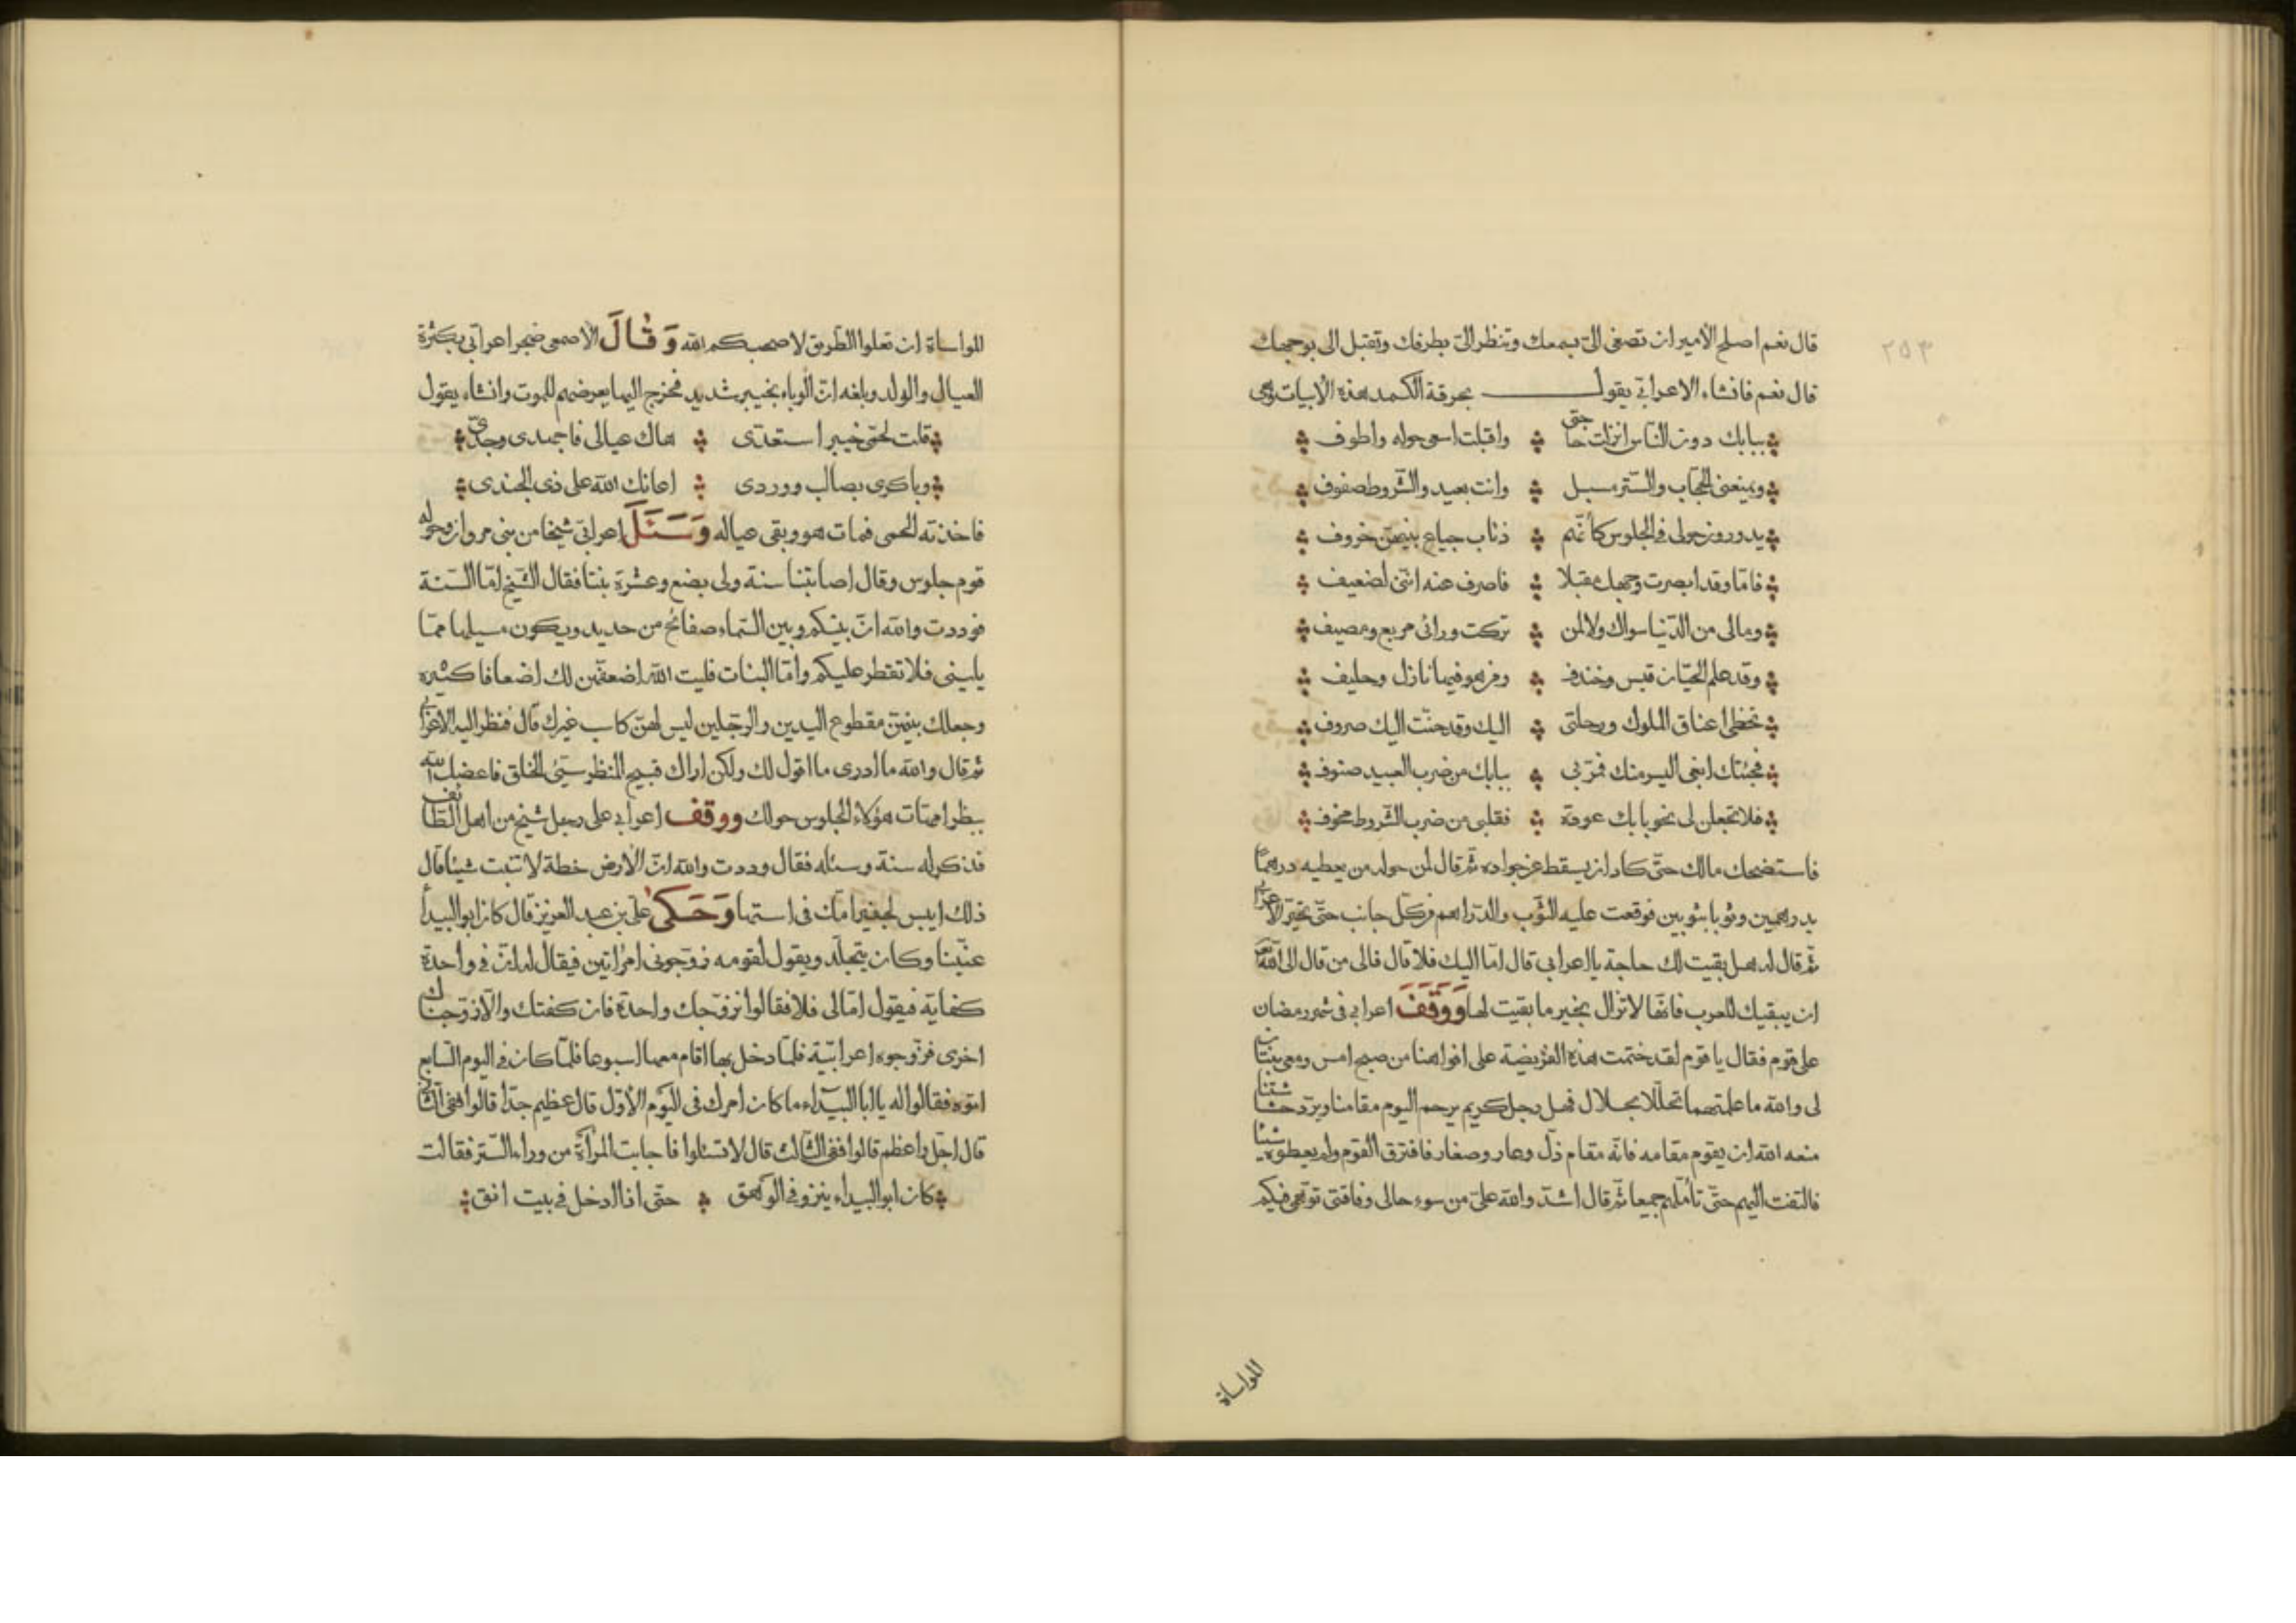 ٢٥٣
قال نعم اصلح الأمير ان تصغى الىّ بسمعك وتنظر الىّ بطرفك وتقبل الى بوجهك
قال نعم فانشاء الاعرابي يقول بحرقة الكمد هذه الأبيات وهى
ببابك دون الناس انزلت حاجتى واقبلت اسعى حوله واطوف
ويمنعنى الحجّاب والسّتر مسبل وانت بعيد والشّروط صفوف
يدورون حولى فى الجلوس كأنّهم ذئاب جياع بينهنّ خروف
فامّا وقد ابصرت وجهك مقبلا فاصرف عنه انّنى لضعيف
ومالى من الدّنيا سواك ولا لمن تركت ورائى مربع ومصيف
وقد علم الحيّان قيس وخندف ومن هو فيها نازل وحليف
تخطى اعناق الملوك ورحلتى اليك وقد حنّت اليك صروف
فجئتك ابغى اليسر منك فمرّ بى ببابك من ضرب العبيد صنوف
فلا تجعلن لى نحو بابك عودة فقلبى من ضرب الشّروط مخوف
فاستضحك مالك حتّى كاد ان يسقط عن جواده ثمّ قال لمن حوله من يعطيه درهما
بدرهمين وثوبا بثوبين فوقعت عليه الثّوب والدّراهم من كلّ جانب حتّى تحيّر الاعرابى
ثمّ قال له هل بقيت لك حاجة يا اعرابي قال امّا اليك فلا قال فالى من قال الى الله
ان يبقيك للعرب فانّها لا تزال بخير ما بقيت لها ووقف اعرابي فى شهر رمضان
على قوم فقال يا قوم لقد ختمت هذه الفريضة على افواهنا من صبح امس ومعى بنتان
لى والله ما علمتهما تحلّلا بحلال فهل رجل كريم يرحم اليوم مقامنا ويردّ حشاشتنا
منعه الله ان يقوم مقامه فانّه مقام ذلّ وعار وصغار فافترق القوم ولم يعطوه شيئا
فالتفت اليهم حتّى تأمّلهم جميعا ثمّ قال اشدّ والله علىّ من سوء حالى وفاقتى توهّمى فيكم
المواساة
المواساة ان تعلوا الطّريق لا صحبكم الله وَقَالَ الأصمعى ضجر اعرابي بكثرة
العيال والولد وبلغه انّ الوباء بخيبر شديد فخرج اليها يعرضهم للموت وانشاء يقول
قلت لحمّى خيبر استعدّى هاك عيالى فاجهدى وجدّى
وباكرى بصالب ووردى اعانك الله على ذى الجندى
فاخذته الحمى فمات هو وبقى عياله وَسَئَلَ اعرابي شيخا من بنى مروان وحوله
قوم جلوس وقال اصابتنا سنة ولى بضع وعشرة بنتا فقال الشّيخ امّا السّنة
فوددت والله انّ بينكم وبين السّماء صفائح من حديد ويكون مسيلها ممّا
يلينى فلا تقطر عليكم وامّا البنات فليت الله اضعفهنّ لك اضعافا كثيره
وجعلك بينهنّ مقطوع اليدين والرّجلين ليس لهنّ كاسب غيرك قال فنظر اليه الاعرابى
ثمّ قال والله ما ادرى ما اقول لك ولكن اراك قبيح المنظر سيّئ الخلق فاعضك الله
ببظر امهات هؤلاء الجلوس حولك ووقف اعرابي على رجل شيخ من اهل الطّائف
فذكر له سنة وسئله فقال وددت والله انّ الأرض خطة لا تنبت شيئا قال
ذلك ايبس لجعير امّك فى استها وَحَكى علىّ بن عبد العزيز قال كان ابو البيدأ
عنّينا وكان يتجلّد ويقول لقومه زوّجونى امرأتين فيقال له انّ فى واحدة
كفاية فيقول امّا لى فلا فقالوا نزوّجك واحدة فان كفتك والّا زوّجناك
اخرى فزوّجوه اعرابيّة فلمّا دخل بها اقام معها اسبوعا فلمّا كان فى اليوم السّابع
اتوه فقالوا له يا ابا البيداء ما كان امرك فى اليوم الأوّل قال عظيم جدّا قالوا ففى الثّانى
قال اجلّ واعظم قالوا ففى الثّالث قال لا تسئلوا فاجابت المرأة من وراء السّتر فقالت
كان ابو البيداء ينزو فى الوهق حتّى اذا ادخل فى بيت انق